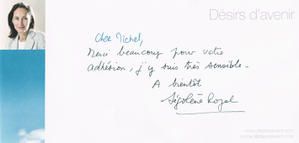 Désirs d'avenir
Cher Michel,
Merci beaucoup pour votre
adhésion, j'y suis très sensible.
A bientôt
Ségolène Royal